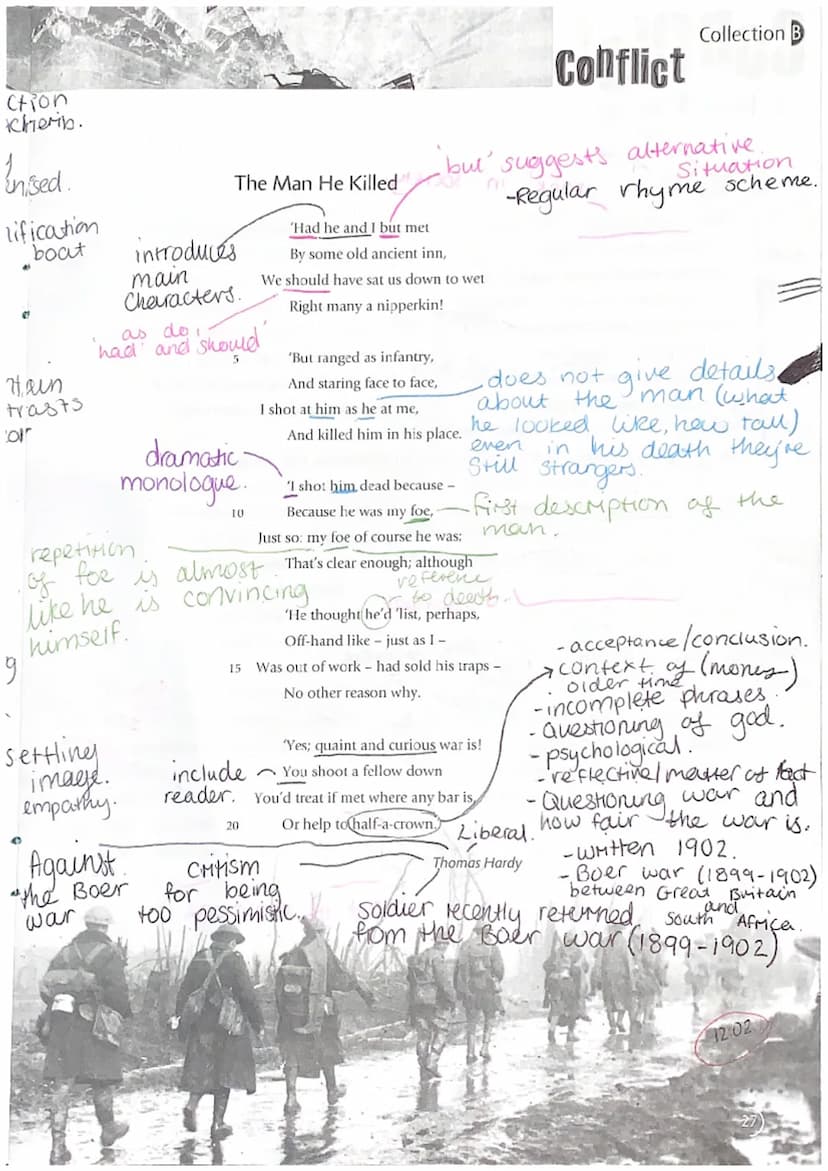 Collection B
Conflict
ction
1
nised.
lification
boat
ntain
trasts
9
settling
image.
empathy.
'but' suggests alternative
situation
-Regular rhyme scheme.
The Man He Killed
'Had he and I but met
By some old ancient inn,
We should have sat us down to wet
Right many a nipperkin!
introduces
main
characters.
as do
'had' and 'should'
5 'But ranged as infantry,
And staring face to face,
I shot at him as he at me,
And killed him in his place.
does not give details
about the man (what
he looked like, how tall)
even in his death they're
still strangers.
dramatic
monologue.
'I shot him dead because –
10 Because he was my foe,
Just so: my foe of course he was;
That's clear enough; although
first description of the
man.
repetition
of foe is almost
like he is convincing
himself.
reference
to death.
'He thought he'd 'list, perhaps,
Off-hand like – just as I –
15 Was out of work – had sold his traps –
No other reason why.
'Yes; quaint and curious war is!
You shoot a fellow down
You'd treat if met where any bar is,
20 Or help to half-a-crown.'
Thomas Hardy
include
reader.
- acceptance/conclusion.
context of (money)
older time
- incomplete phrases.
- Questioning of god.
- psychological.
- reflective/matter of fact
- Questioning war and
how fair the war is.
- written 1902.
- Boer war (1899-1902)
between Great Britain
and
South Africa.
Liberal.
Against
the Boer
war
Critism
for being
too pessimistic.
Soldier recently returned
from the Boer war (1899-1902)
12 02
27